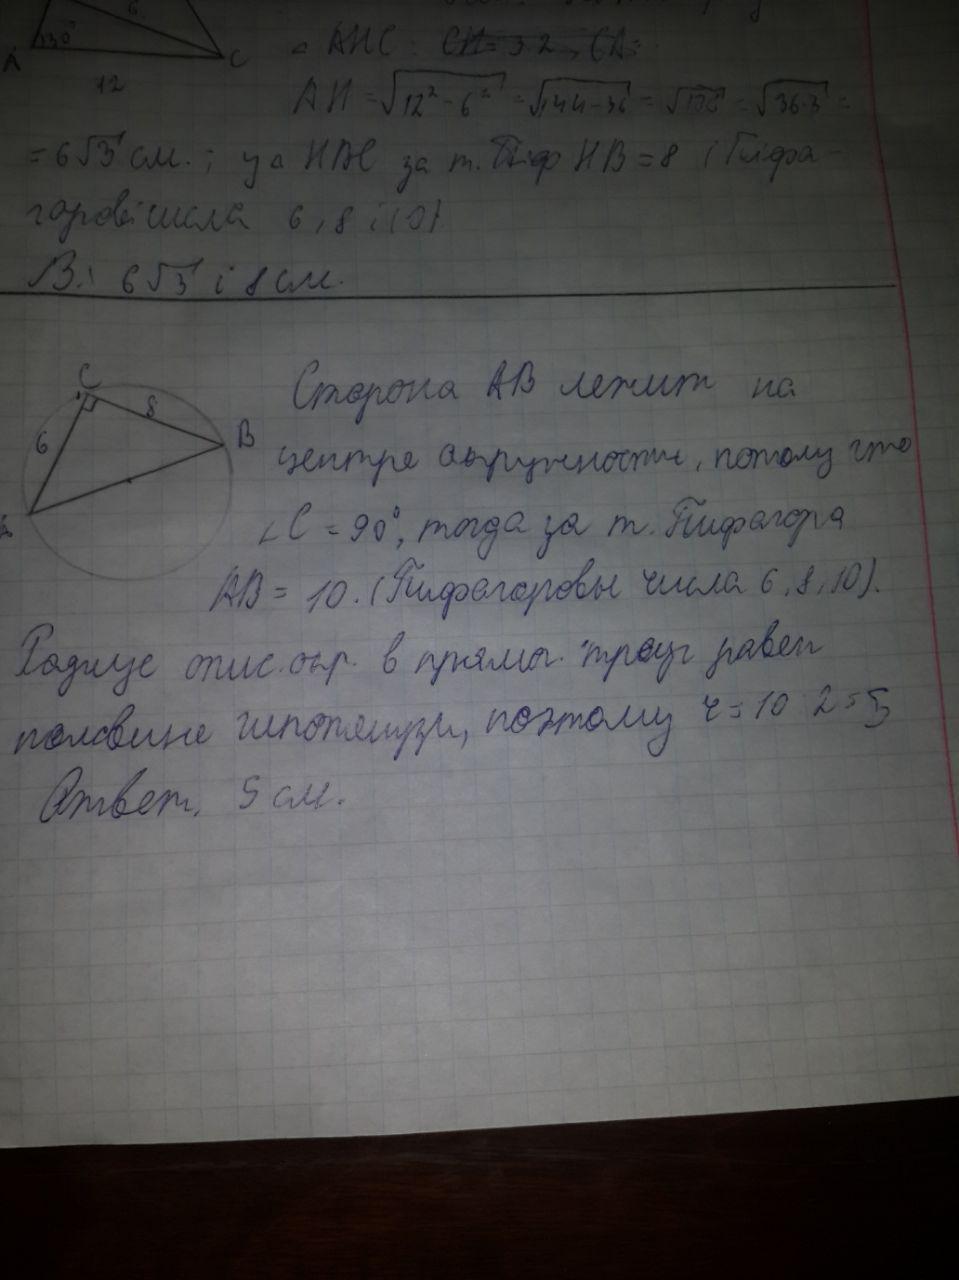 6
A 30° C
12
△ AHC: CH = 3·2, CA =
AH = √12² - 6² = √144-36 = √108 = √36·3 =
= 6√3 см. ; у △ HBC за т. Піф HB = 8 (Піфа-
горові числа 6, 8 і 10)
В.: 6√3 і 8 см.
C
6 8 B
A
Сторона AB лежит на
центре окружности, потому что
∠C = 90°, тогда за т. Пифагора
AB = 10. (Пифагоровы числа 6, 8, 10).
Радиус опис. окр. в прямоуг. треуг равен
половине гипотенузи, поэтому r = 10:2=5
Ответ. 5 см.